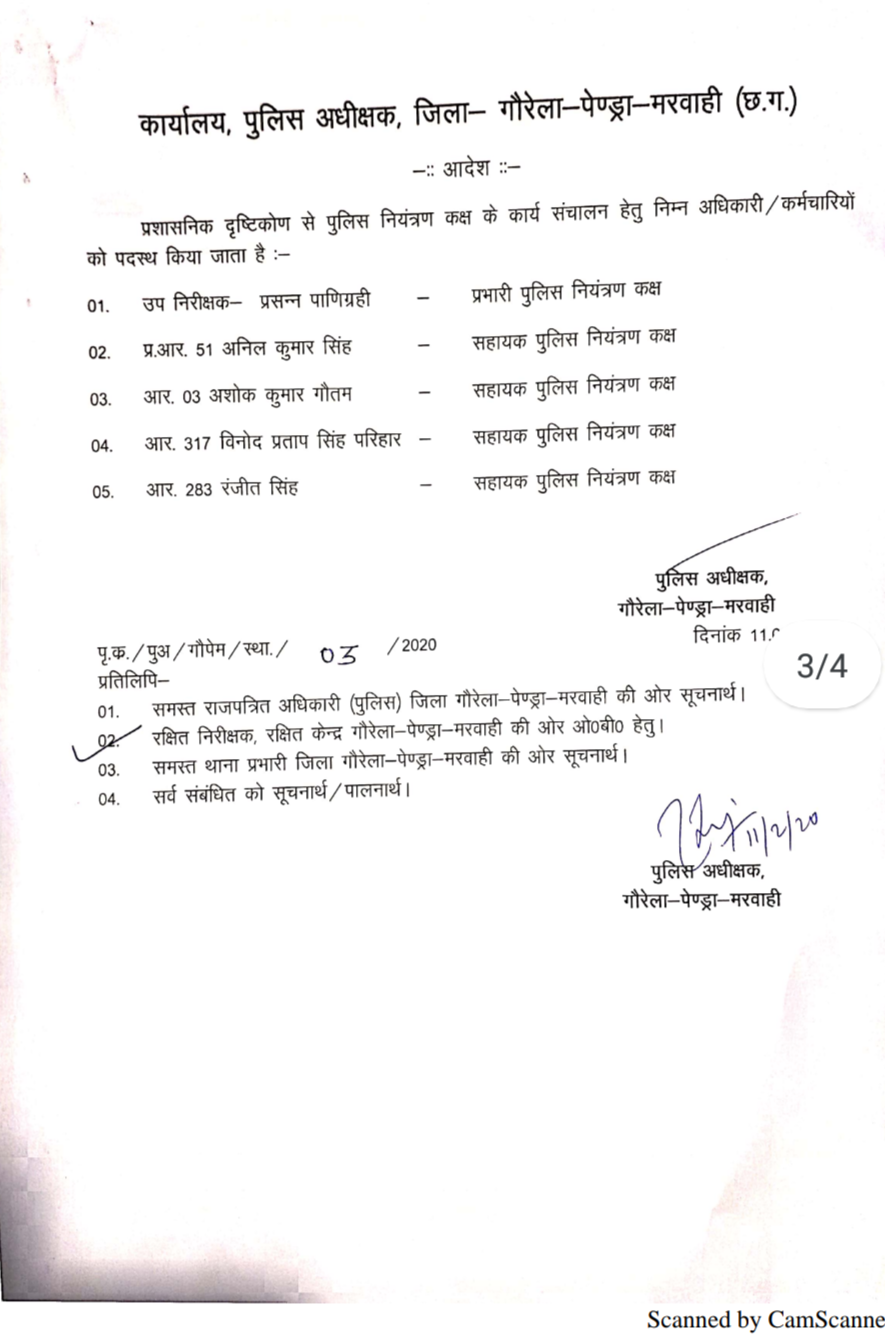 कार्यालय, पुलिस अधीक्षक, जिला– गौरेला–पेण्ड्रा–मरवाही (छ.ग.)
–:: आदेश ::–
प्रशासनिक दृष्टिकोण से पुलिस नियंत्रण कक्ष के कार्य संचालन हेतु निम्न अधिकारी/कर्मचारियों
को पदस्थ किया जाता है :–
01. उप निरीक्षक– प्रसन्न पाणिग्रही – प्रभारी पुलिस नियंत्रण कक्ष
02. प्र.आर. 51 अनिल कुमार सिंह – सहायक पुलिस नियंत्रण कक्ष
03. आर. 03 अशोक कुमार गौतम – सहायक पुलिस नियंत्रण कक्ष
04. आर. 317 विनोद प्रताप सिंह परिहार – सहायक पुलिस नियंत्रण कक्ष
05. आर. 283 रंजीत सिंह – सहायक पुलिस नियंत्रण कक्ष
पुलिस अधीक्षक,
गौरेला–पेण्ड्रा–मरवाही
दिनांक 11.
पृ.क./पुअ/गौपेम/स्था./ 03 /2020
3/4
प्रतिलिपि–
01. समस्त राजपत्रित अधिकारी (पुलिस) जिला गौरेला–पेण्ड्रा–मरवाही की ओर सूचनार्थ।
02. रक्षित निरीक्षक, रक्षित केन्द्र गौरेला–पेण्ड्रा–मरवाही की ओर ओ0बी0 हेतु।
03. समस्त थाना प्रभारी जिला गौरेला–पेण्ड्रा–मरवाही की ओर सूचनार्थ।
04. सर्व संबंधित को सूचनार्थ/पालनार्थ।
11/2/20
पुलिस अधीक्षक,
गौरेला–पेण्ड्रा–मरवाही
Scanned by CamScanne